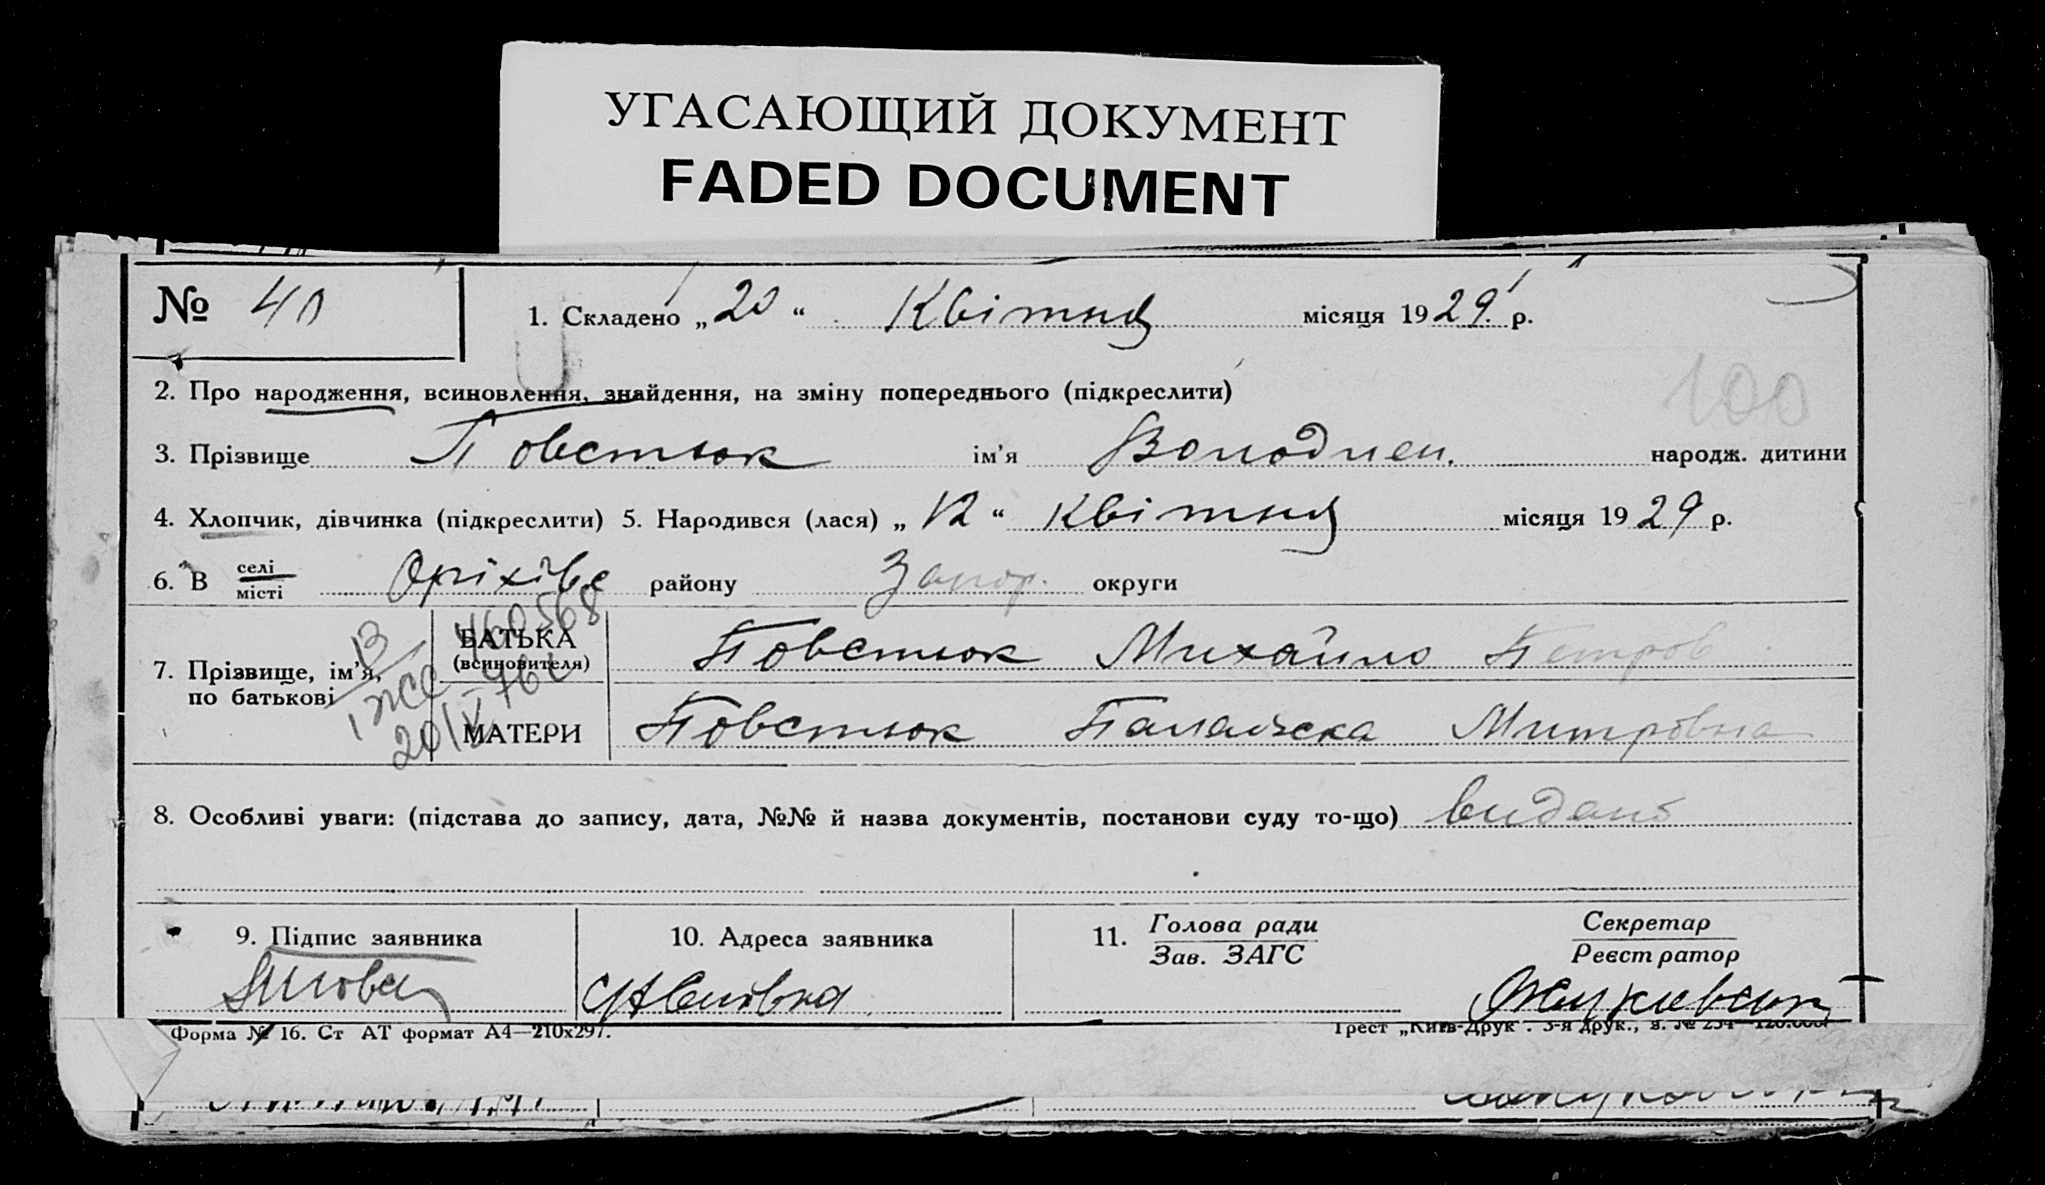 УГАСАЮЩИЙ ДОКУМЕНТ
FADED DOCUMENT
№ 40
1. Складено „ 20 “ Квітня місяця 1929 р.
100
2. Про народження, всиновлення, знайдення, на зміну попереднього (підкреслити)
3. Прізвище Повстюк ім'я Володмеи. народж. дитини
4. Хлопчик, дівчинка (підкреслити) 5. Народився (лася) „ 12 “ Квітня місяця 1929 р.
6. В селі місті Оріхівс району Запор. округи
460568
7. Прізвище, ім'я, по батькові
БАТЬКА (всиновителя) Повстюк Михайло Петров
МАТЕРИ Повстюк Палажка Митровна
8. Особливі уваги: (підстава до запису, дата, №№ й назва документів, постанови суду то-що) видано
9. Підпис заявника
10. Адреса заявника
11. Голова ради Зав. ЗАГС
Секретар Реєстратор
Форма № 16. Ст АТ формат А4—210х297.
Трест „Київ-Друк“. 3-я друк., з. № 254—120.000